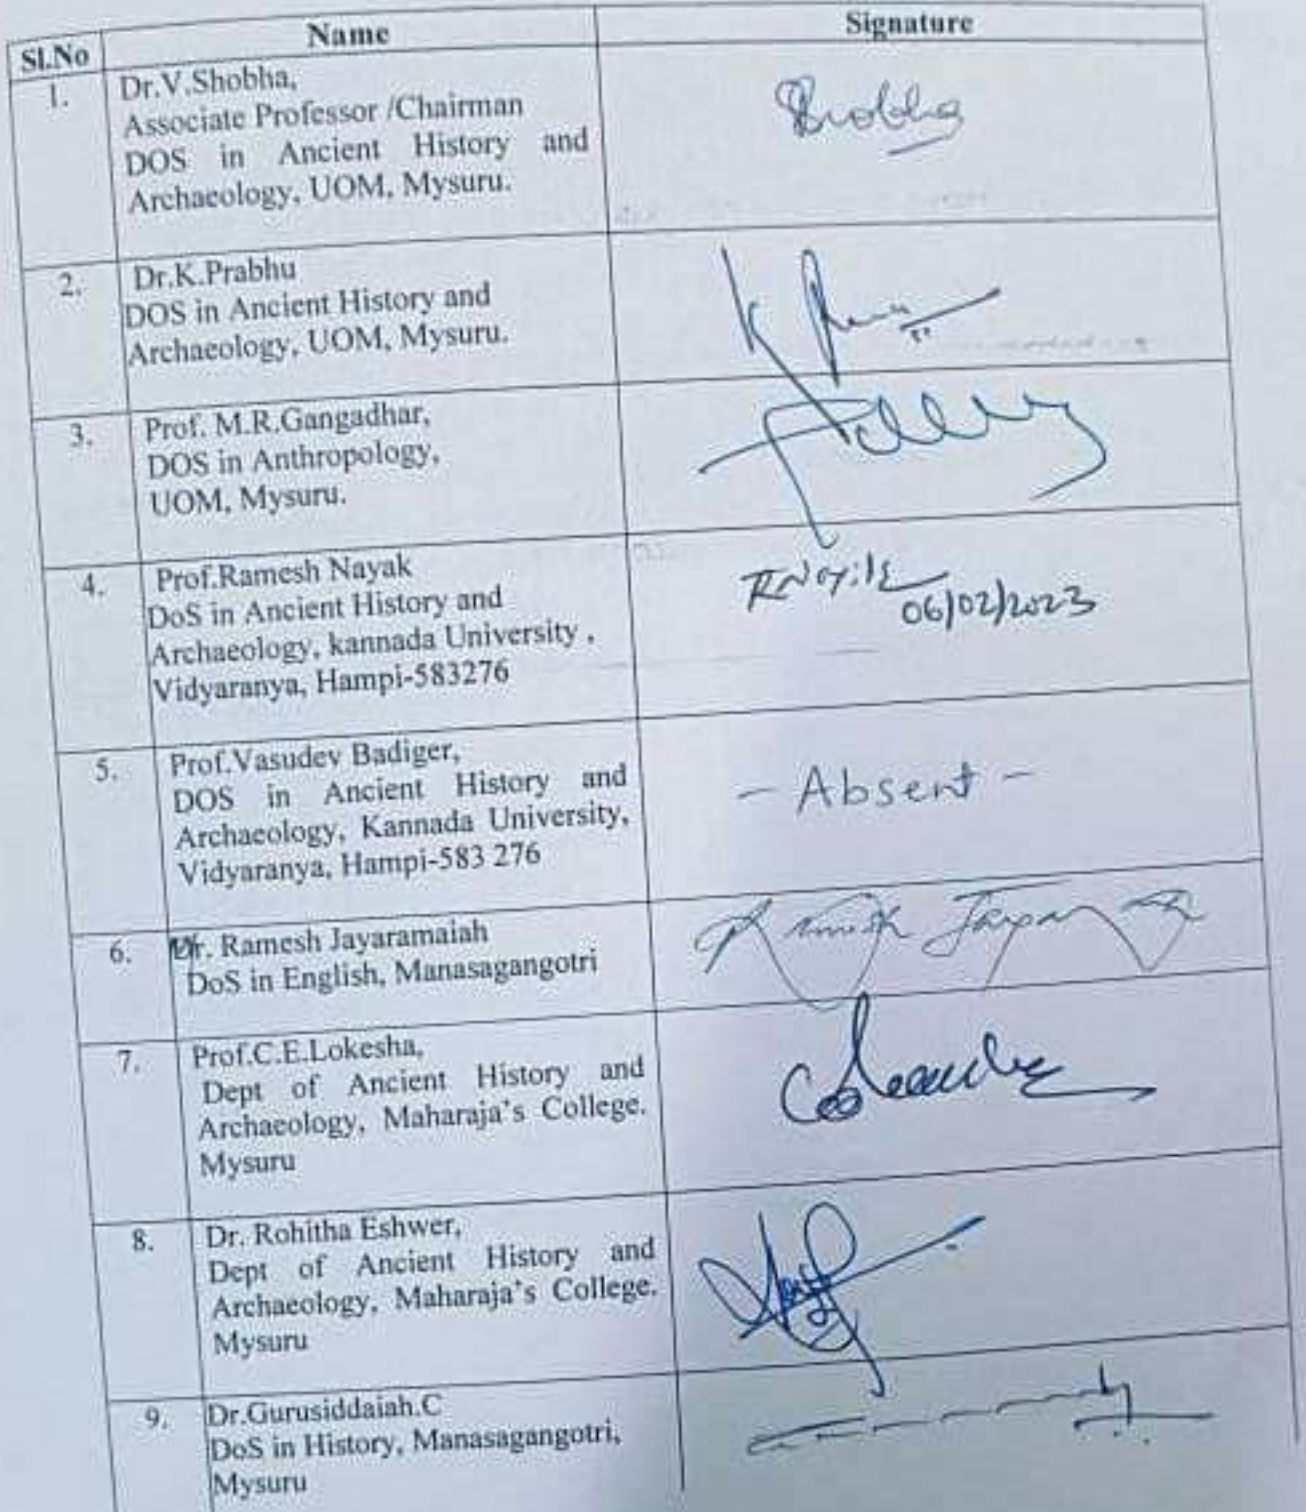 Sl.No Name Signature
1. Dr.V.Shobha, Shobha
Associate Professor /Chairman
DOS in Ancient History and
Archaeology, UOM, Mysuru.
2. Dr.K.Prabhu
DOS in Ancient History and
Archaeology, UOM, Mysuru.
3. Prof. M.R.Gangadhar,
DOS in Anthropology,
UOM, Mysuru.
4. Prof.Ramesh Nayak
06/02/2023
DoS in Ancient History and
Archaeology, kannada University ,
Vidyaranya, Hampi-583276
5. Prof.Vasudev Badiger,
DOS in Ancient History and - Absent -
Archaeology, Kannada University,
Vidyaranya, Hampi-583 276
6. Dr. Ramesh Jayaramaiah
DoS in English, Manasagangotri
7. Prof.C.E.Lokesha,
Dept of Ancient History and
Archaeology, Maharaja's College.
Mysuru
8. Dr. Rohitha Eshwer,
Dept of Ancient History and
Archaeology, Maharaja's College.
Mysuru
9. Dr.Gurusiddaiah.C
DoS in History, Manasagangotri,
Mysuru